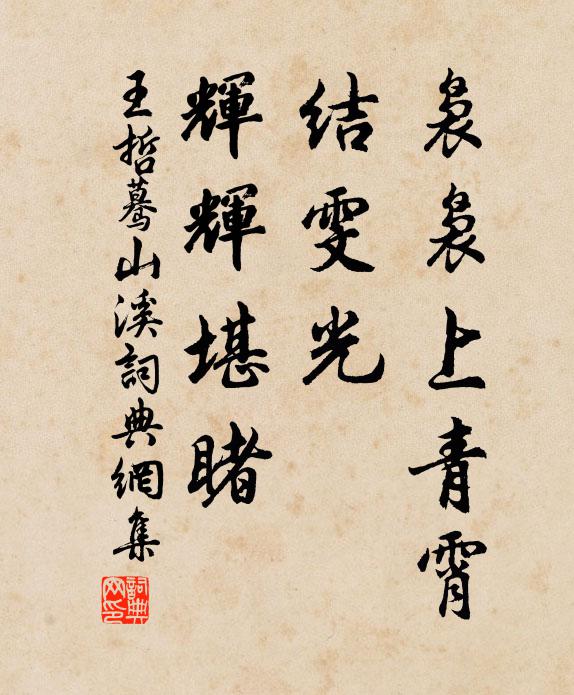 裊裊上青霄
結雯光
輝輝堪睹
王哲驀山溪詞典網集
詞典網印